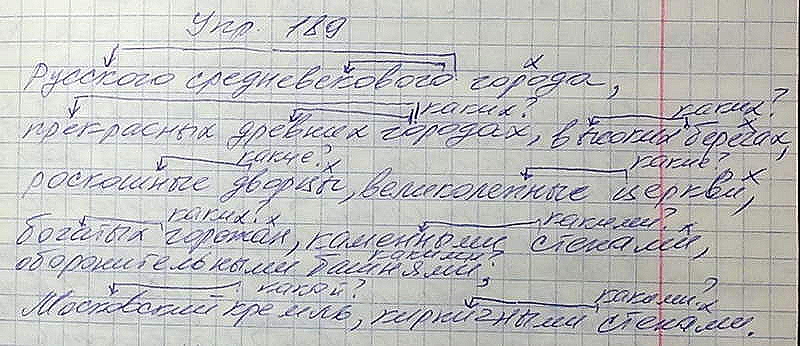 Упр. 189
Русского средневекового города,
каких? каких?
прекрасных древних городах, высоких берегах,
какие? какие?
роскошные дворцы, великолепные церкви,
каких? какими?
богатых горожан, каменными стенами,
какими?
оборонительными башнями;
какой? какими?
Московский кремль, кирпичными стенами.